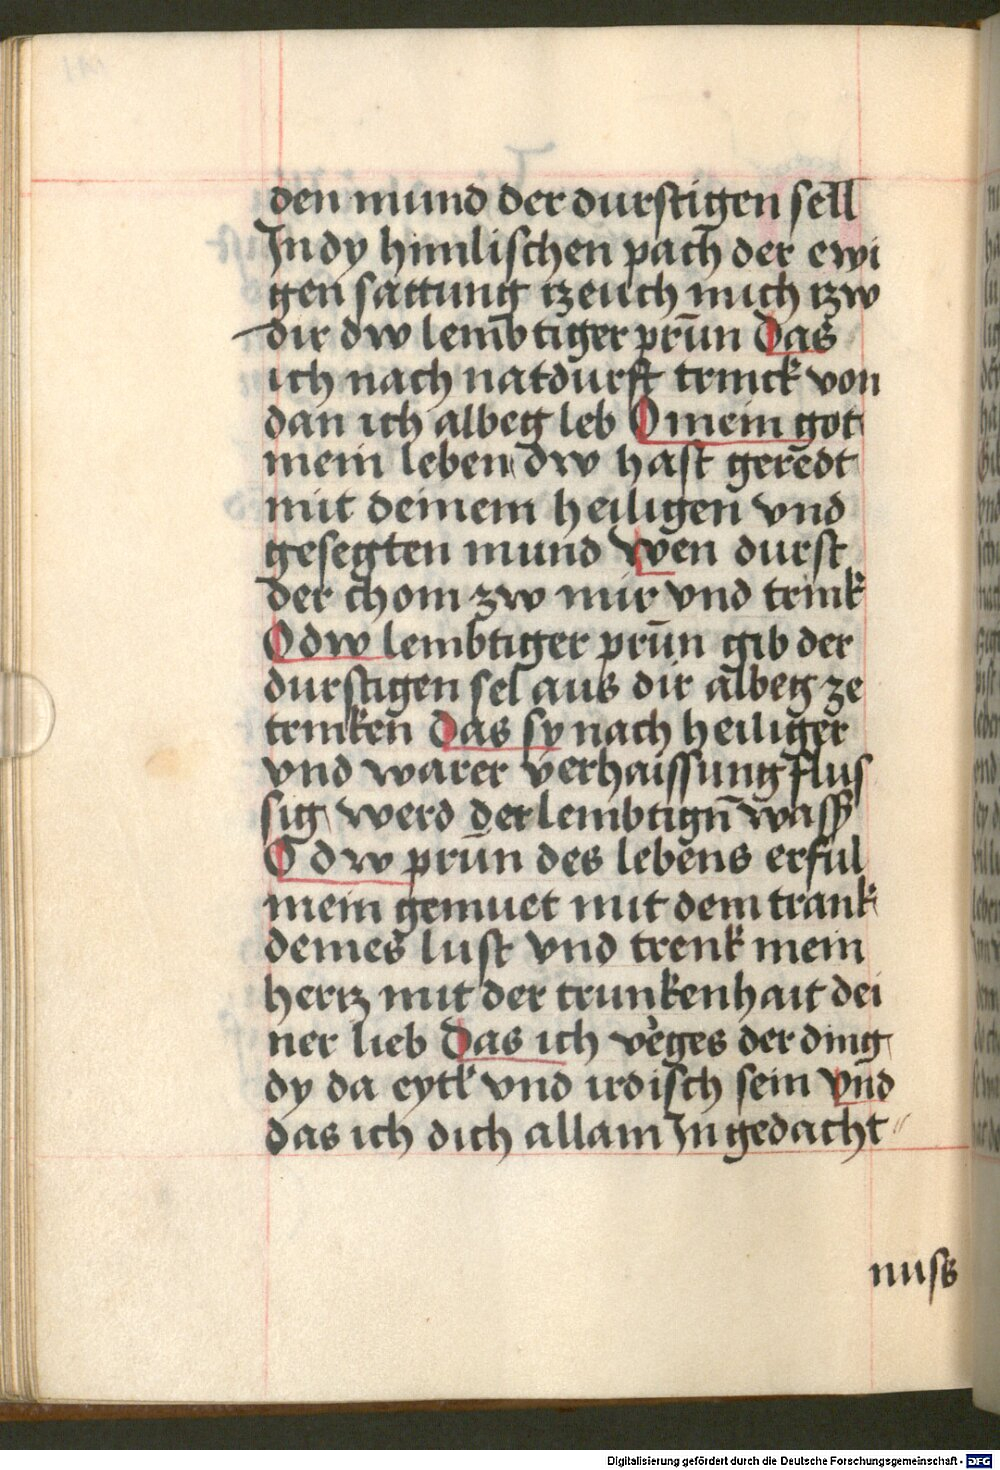 den mund der durstigen sell
In dy himlischen pach der ewi
gen sattung tzeuch mich tzw
dir dw lembtiger prūn Das
ich nach natdurft trinck von
dan ich albeg leb O mein got
mein leben dw hast geredt
mit deinem heiligen vnd
gesegten mund Wen durst
der chom zw mir vnd trink
O dw lembtiger prūn gib der
durstigen sel aus dir albeg ze
trinken Das sy nach heiliger
vnd warer verhaissung flus
sig werd der lembtign̄ wasser
O dw prūn des lebens erful
mein gemuet mit dem trank
deines lust vnd trenk mein
hertz mit der trunkenhait dei
ner lieb Das ich v̓ges der ding
dy da eytl vnd irdisch sein Vnd
das ich dich allain In gedacht
nuss
Digitalisierung gefördert durch die Deutsche Forschungsgemeinschaft - DFG